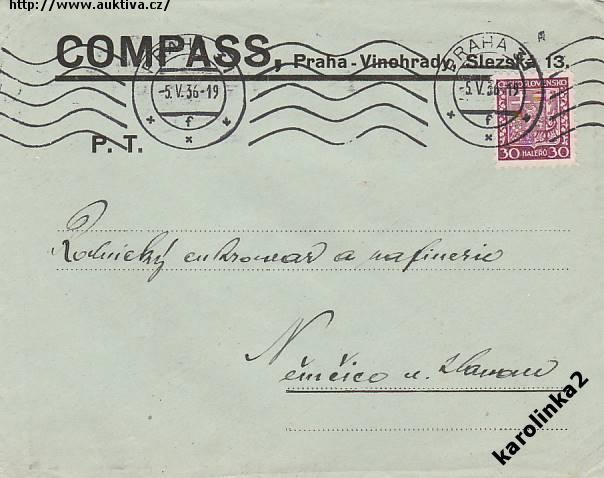 http://www.auktiva.cz/
COMPASS, Praha - Vinohrady, Slezská 13.
PRAHA
-5.V.36-19
f
PRAHA 3
-5.V.36-19
f
ČESKOSLOVENSKO
30 HALÉŘŮ 30
P. T.
Rolnický cukrovar a rafinerie
V
Němčice n. Hanou
karolinka2